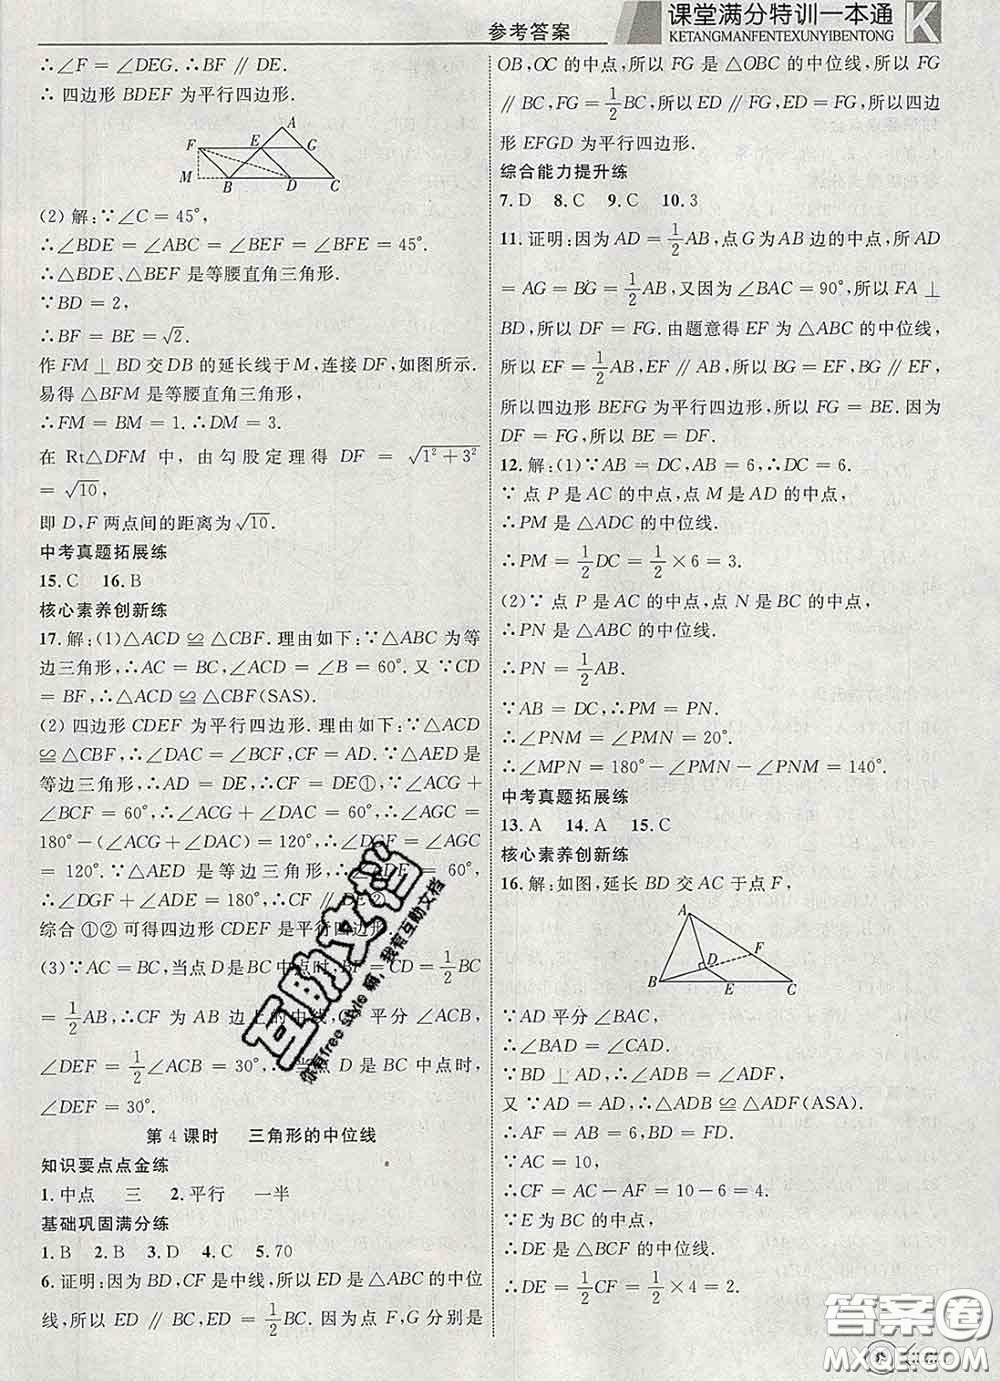 参考答案
课堂满分特训一本通
KETANGMANFENTEXUNYIBENTONG
K
∴∠F = ∠DEG. ∴BF ∥ DE.
∴ 四边形 BDEF 为平行四边形.
A
F E G
M B D C
(2) 解:∵∠C = 45°,
∴∠BDE = ∠ABC = ∠BEF = ∠BFE = 45°.
∴△BDE、△BEF 是等腰直角三角形.
∵BD = 2,
∴BF = BE = √2.
作 FM ⊥ BD 交 DB 的延长线于 M,连接 DF,如图所示.
易得 △BFM 是等腰直角三角形,
∴FM = BM = 1. ∴DM = 3.
在 Rt△DFM 中,由勾股定理得 DF = √(1² + 3²)
= √10,
即 D,F 两点间的距离为 √10.
中考真题拓展练
15. C 16. B
核心素养创新练
17. 解:(1)△ACD ≌ △CBF. 理由如下:∵△ABC 为等
边三角形,∴AC = BC,∠ACD = ∠B = 60°. 又 ∵CD
= BF,∴△ACD ≌ △CBF(SAS).
(2) 四边形 CDEF 为平行四边形. 理由如下:∵△ACD
≌ △CBF,∴∠DAC = ∠BCF,CF = AD. ∵△AED 是
等边三角形,∴AD = DE,∴CF = DE①,∵∠ACG +
∠BCF = 60°,∴∠ACG + ∠DAC = 60°,∴∠AGC =
180° − (∠ACG + ∠DAC) = 120°,∴∠DGF = ∠AGC
= 120°. ∵△AED 是等边三角形,∴∠ADE = 60°,
∴∠DGF + ∠ADE = 180°,∴CF ∥ DE ②
综合 ①② 可得四边形 CDEF 是平行四边形.
(3)∵AC = BC,当点 D 是 BC 中点时,BF = CD = 1/2 BC
= 1/2 AB,∴CF 为 AB 边上的中线,CF 平分 ∠ACB,
∠DEF = 1/2 ∠ACB = 30°,∴当点 D 是 BC 中点时,
∠DEF = 30°.
第 4 课时 三角形的中位线
知识要点点金练
1. 中点 三 2. 平行 一半
基础巩固满分练
1. B 2. B 3. D 4. C 5. 70
6. 证明:因为 BD,CF 是中线,所以 ED 是 △ABC 的中位
线,所以 ED ∥ BC,ED = 1/2 BC. 因为点 F,G 分别是
OB,OC 的中点,所以 FG 是 △OBC 的中位线,所以 FG
∥ BC,FG = 1/2 BC,所以 ED ∥ FG,ED = FG,所以四边
形 EFGD 为平行四边形.
综合能力提升练
7. D 8. C 9. C 10. 3
11. 证明:因为 AD = 1/2 AB,点 G 为 AB 边的中点,所 AD
= AG = BG = 1/2 AB,又因为 ∠BAC = 90°,所以 FA ⊥
BD,所以 DF = FG. 由题意得 EF 为 △ABC 的中位线,
所以 EF = 1/2 AB,EF ∥ AB,所以 BG = EF,BG ∥ EF,
所以四边形 BEFG 为平行四边形,所以 FG = BE. 因为
DF = FG,所以 BE = DF.
12. 解:(1)∵AB = DC,AB = 6,∴DC = 6.
∵ 点 P 是 AC 的中点,点 M 是 AD 的中点,
∴PM 是 △ADC 的中位线.
∴PM = 1/2 DC = 1/2 × 6 = 3.
(2)∵ 点 P 是 AC 的中点,点 N 是 BC 的中点,
∴PN 是 △ABC 的中位线.
∴PN = 1/2 AB.
∵AB = DC,∴PM = PN.
∴∠PNM = ∠PMN = 20°.
∴∠MPN = 180° − ∠PMN − ∠PNM = 140°.
中考真题拓展练
13. A 14. A 15. C
核心素养创新练
16. 解:如图,延长 BD 交 AC 于点 F,
A
F
D
B E C
∵AD 平分 ∠BAC,
∴∠BAD = ∠CAD.
∵BD ⊥ AD,∴∠ADB = ∠ADF.
又 ∵AD = AD,∴△ADB ≌ △ADF(ASA).
∴AF = AB = 6,BD = FD.
∵AC = 10,
∴CF = AC − AF = 10 − 6 = 4.
∵E 为 BC 的中点,
∴DE 是 △BCF 的中位线.
∴DE = 1/2 CF = 1/2 × 4 = 2.
互助文档
你有 free Style 嘛,我有互助文档
答案圈
MXQE.COM